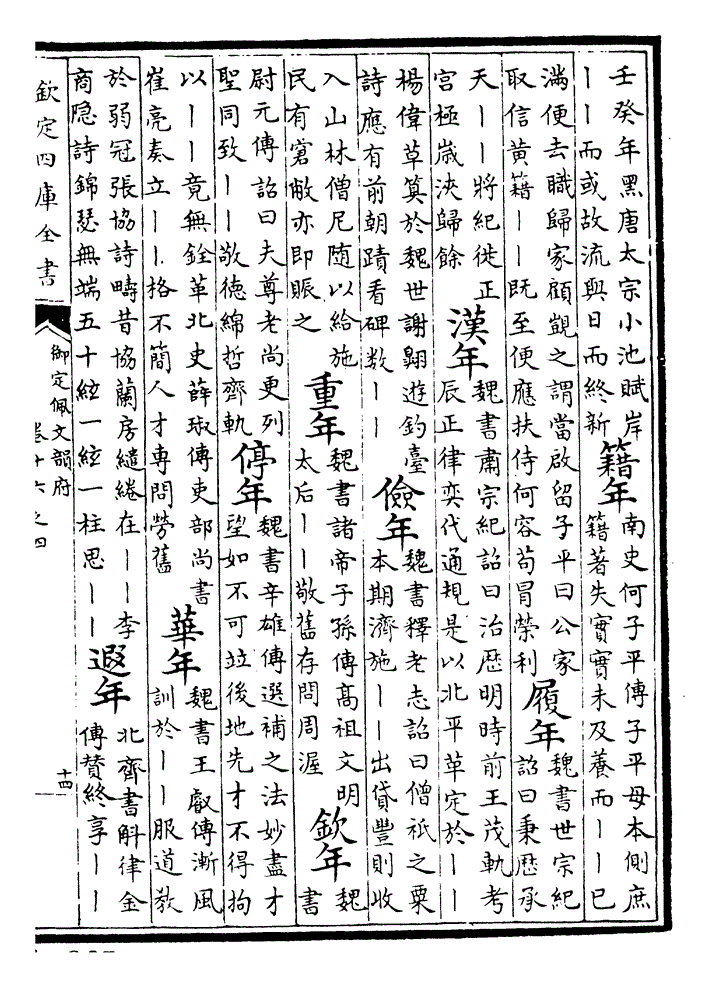 壬癸年黑唐太宗小池賦岸
丨丨而或故流與日而終新
籍年
南史何子平傳子平母本側庶
籍著失實實未及養而丨丨已
滿便去職歸家顧覬之謂當啟留子平曰公家
取信黃籍丨丨既至便應扶侍何容苟冒榮利
履年
魏書世宗紀
詔曰秉歴承
天丨丨將紀徙正
宮極嵗浹歸餘
漢年
魏書肅宗紀詔曰治歴明時前王茂軌考
辰正律奕代通規是以北平草定於丨丨
楊偉草筭於魏世謝翺遊釣臺
詩應有前朝蹟看碑数丨丨
儉年
魏書釋老志詔曰僧祇之粟
本期濟施丨丨出貸豐則收
入山林僧尼随以給施
民有窘敝亦即賑之
重年
魏書諸帝子孫傳髙祖文明
太后丨丨敬舊存問周渥
欽年
魏
書
尉元傳詔曰夫尊老尚更列
聖同致丨丨敬德綿哲齊軌
停年
魏書辛雄傳選補之法妙盡才
望如不可竝後地先才不得拘
以丨丨竟無銓革北史薛琡傳吏部尚書
崔亮奏立丨丨格不簡人才專問勞舊
華年
魏書王叡傳漸風
訓於丨丨服道教
於弱冠張協詩疇昔協蘭房繾綣在丨丨李
商隐詩錦瑟無端五十絃一絃一柱思丨丨
遐年
北齊書斛律金
傳賛終享丨丨
欽定四庫全書
御定佩文韻府
卷十六之四
十四